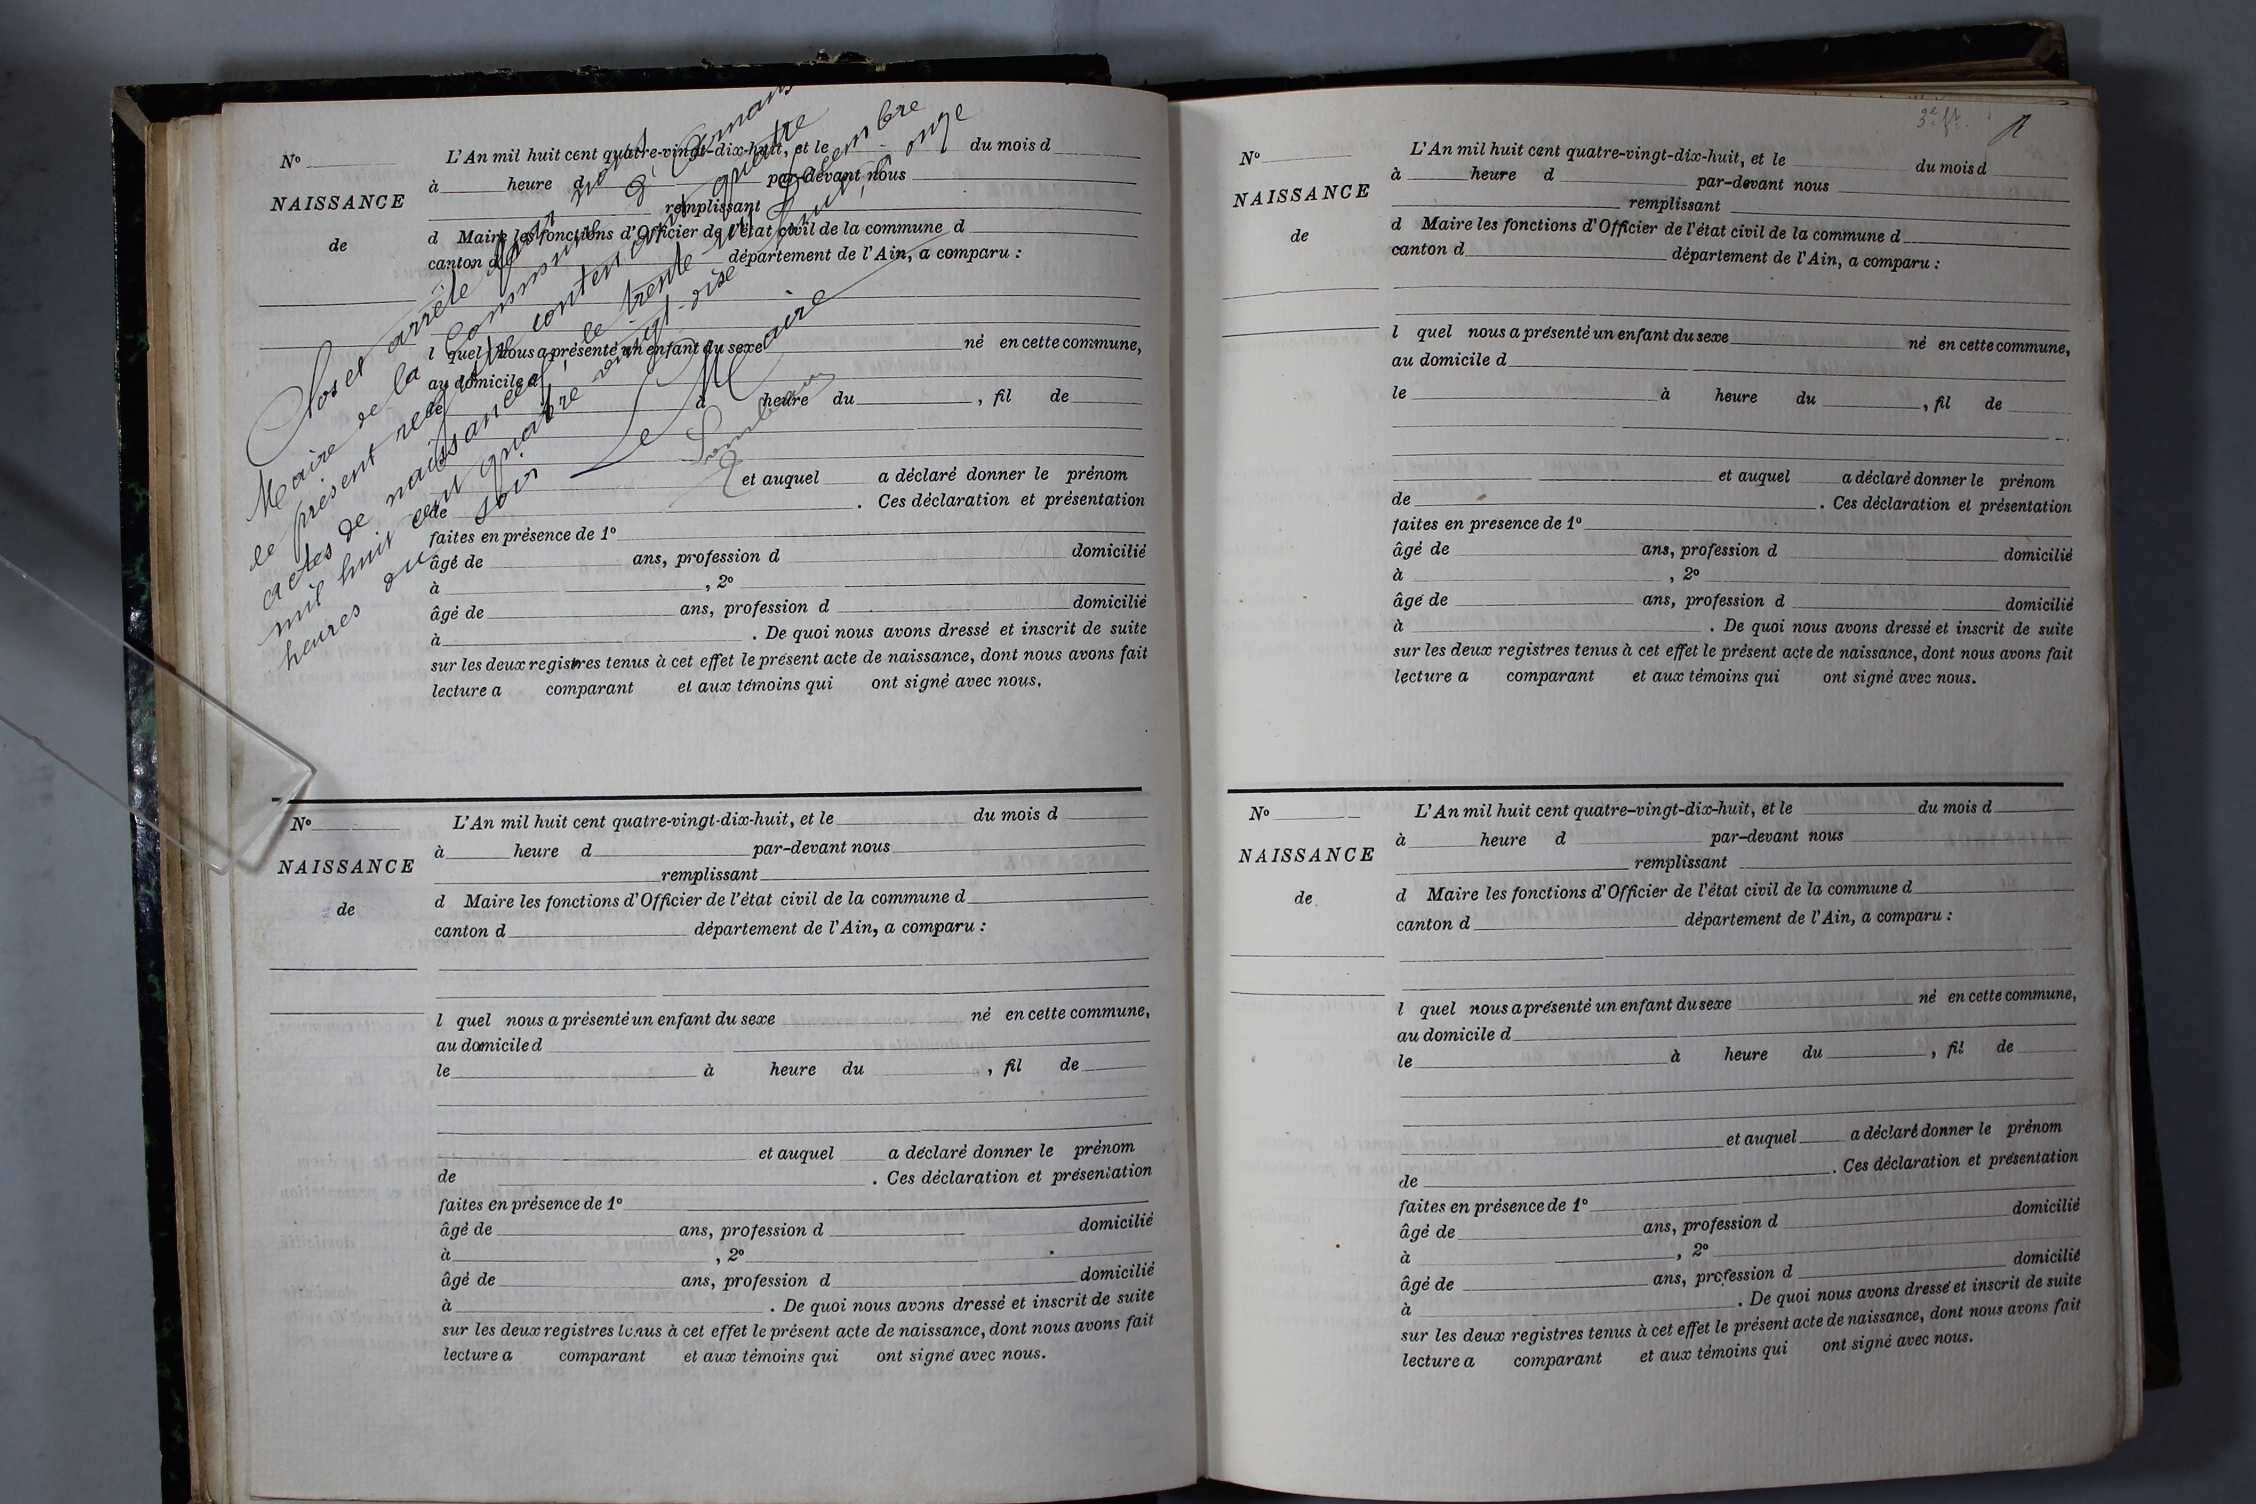 Clos et arrêté par nous
Maire de la Commune d'
le présent registre contenant quatre
actes de naissances, le trente-un Décembre
mil huit cent quatre vingt-dix huit, à onze
heures du soir
Le Maire
N°
NAISSANCE
de
L'An mil huit cent quatre-vingt-dix-huit, et le du mois d
à heure d par-devant nous
remplissant
d Maire les fonctions d'Officier de l'état civil de la commune d
canton d département de l'Ain, a comparu :
l quel nous a présenté un enfant du sexe né en cette commune,
au domicile d
le à heure du , fil de
et auquel a déclaré donner le prénom
de . Ces déclaration et présentation
faites en présence de 1°
âgé de ans, profession d domicilié
à , 2°
âgé de ans, profession d domicilié
à . De quoi nous avons dressé et inscrit de suite
sur les deux registres tenus à cet effet le présent acte de naissance, dont nous avons fait
lecture a comparant et aux témoins qui ont signé avec nous.
N°
NAISSANCE
de
L'An mil huit cent quatre-vingt-dix-huit, et le du mois d
à heure d par-devant nous
remplissant
d Maire les fonctions d'Officier de l'état civil de la commune d
canton d département de l'Ain, a comparu :
l quel nous a présenté un enfant du sexe né en cette commune,
au domicile d
le à heure du , fil de
et auquel a déclaré donner le prénom
de . Ces déclaration et présentation
faites en présence de 1°
âgé de ans, profession d domicilié
à , 2°
âgé de ans, profession d domicilié
à . De quoi nous avons dressé et inscrit de suite
sur les deux registres tenus à cet effet le présent acte de naissance, dont nous avons fait
lecture a comparant et aux témoins qui ont signé avec nous.
3e ft.
N°
NAISSANCE
de
L'An mil huit cent quatre-vingt-dix-huit, et le du mois d
à heure d par-devant nous
remplissant
d Maire les fonctions d'Officier de l'état civil de la commune d
canton d département de l'Ain, a comparu :
l quel nous a présenté un enfant du sexe né en cette commune,
au domicile d
le à heure du , fil de
et auquel a déclaré donner le prénom
de . Ces déclaration et présentation
faites en presence de 1°
âgé de ans, profession d domicilié
à , 2°
âgé de ans, profession d domicilié
à . De quoi nous avons dressé et inscrit de suite
sur les deux registres tenus à cet effet le présent acte de naissance, dont nous avons fait
lecture a comparant et aux témoins qui ont signé avec nous.
N°
NAISSANCE
de
L'An mil huit cent quatre-vingt-dix-huit, et le du mois d
à heure d par-devant nous
remplissant
d Maire les fonctions d'Officier de l'état civil de la commune d
canton d département de l'Ain, a comparu :
l quel nous a présenté un enfant du sexe né en cette commune,
au domicile d
le à heure du , fil de
et auquel a déclaré donner le prénom
de . Ces déclaration et présentation
faites en présence de 1°
âgé de ans, profession d domicilié
à , 2°
âgé de ans, profession d domicilié
à . De quoi nous avons dressé et inscrit de suite
sur les deux registres tenus à cet effet le présent acte de naissance, dont nous avons fait
lecture a comparant et aux témoins qui ont signé avec nous.